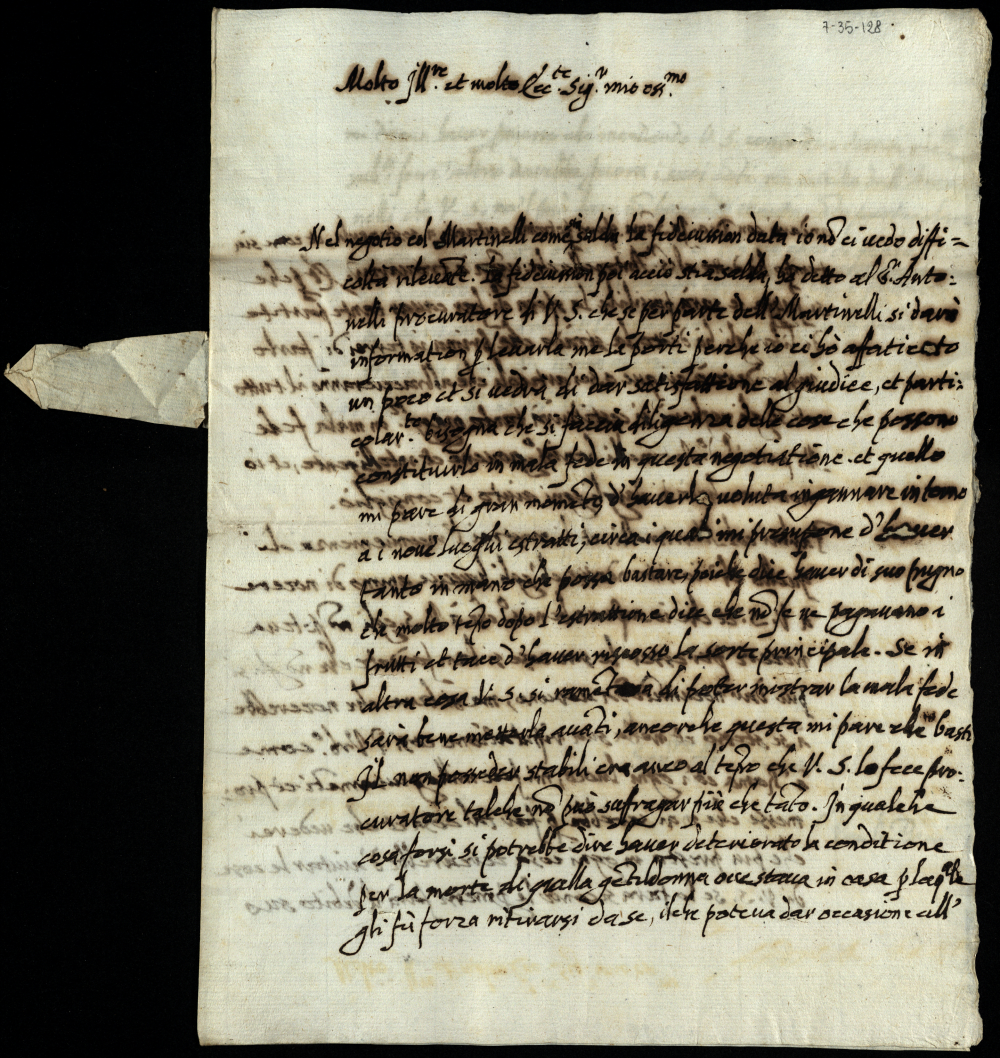 7-35-128
Molto Ill.re et molto Ecc.te Sig.r mio oss.mo
Nel negotio col Martinelli come salda la fideiussion data io nõ ci vedo diffi=
coltà rilevãte. La fideiussion poi acciò stia salda, hò detto al S.r Anto:
nelli procuratore di V. S. che se per parte dell Martinelli si darà
information p levarla me la porti perche io ci hò affaticato
un poco et si vedrà di dar satisfattione al giudice, et parti:
colar.te bisogna che si faccia diligenza delle cose che possono
constituirlo in mala fede in questa negotiatione. et quello
mi pare di gran momẽto d'haverla voluta ingannare intorno
a i nove luoghi estratti, circa i quali mi presuppone d'haver
tanto in mano che possa bastare, poiche dice haver di suo pugno
che molto tẽpo dopo l'estrattione dice che nõ se ne pagavano i
frutti et tace d'haver riscosso la sorte principale. Se in
altra cosa V. S. si ramẽta di poter mostrar la mala fede
sarà bene metterla avãti, ancorche questa mi pare che basti
Il non posseder stabili era anco al tẽpo che V. S. lo fece pro:
curatore talche nõ può suffragar più che tãto. In qualche
cosa forsi si potrebbe dire haver deteriorato la conditione
per la morte di quella gẽtildonna ove stava in casa p la qle
gli fù forza ritirarsi da se, il che poteva dar occasione all'